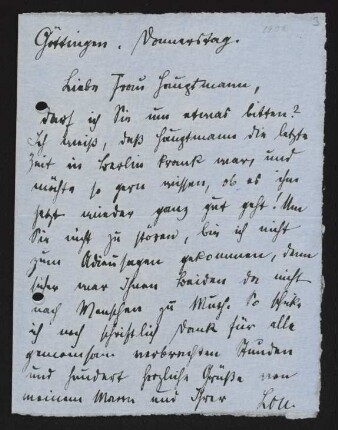 Göttingen. Donnerstag.
Liebe Frau Hauptmann,
darf ich Sie um etwas bitten?
Ich weiß, daß Hauptmann die letzte
Zeit in Berlin krank war, und
möchte so gern wissen, ob es ihm
jetzt wieder ganz gut geht! Um
Sie nicht zu stören, bin ich nicht
zum Adieusagen gekommen, denn
sicher war Ihnen beiden da nicht
nach Menschen zu Muth. So schicke
ich noch schriftlich Dank für alle
gemeinsam verbrachten Stunden
und hundert herzliche Grüße von
meinem Mann und Ihrer Lou.